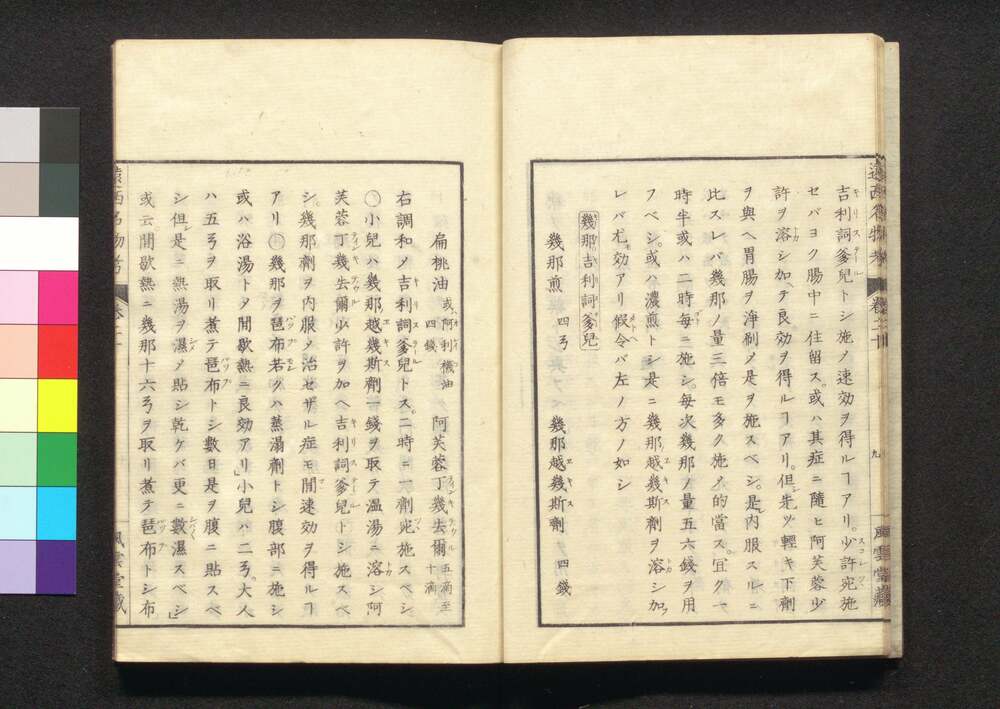 吉利詞爹兒トシ施ノ速効ヲ得ルヿアリ。少許宛施
セバヨク腸中ニ住留ス。或ハ其症ニ隨ヒ阿芙蓉少
許ヲ溶シ加ヘテ良効ヲ得ルヿアリ。但先ッ輕キ下劑
ヲ與ヘ胃腸ヲ淨刷ノ是ヲ施スベシ。是内服スルニ
比スレバ幾那ノ量三倍モ多ク施ノ的當ス。宜ク一
時半或ハ二時毎ニ施シ。毎次幾那ノ量五六錢ヲ用
フベシ。或ハ濃煎トシ是ニ幾那越幾斯劑ヲ溶シ加フ
レバ尤効アリ假令バ左ノ方ノ如シ
幾那吉利詞爹兒
幾那煎 四弓 幾那越幾斯劑 四錢
扁桃油 或阿利襪油 四錢 阿芙蓉丁幾去爾 五滴至十滴
右調和ノ吉利詞爹兒トス。二時ニ一劑宛施スベシ
〇小兒ハ幾那越幾斯劑一錢ヲ取テ温湯ニ溶シ阿
芙蓉丁幾去爾少許ヲ加ヘ吉利詞爹兒トシ施スベ
シ。幾那劑ヲ内服ノ治セザル症モ間速効ヲ得ルヿ
アリ〇幾那ヲ琶布若クハ蒸溻劑トシ腹部ニ施シ
或ハ浴湯トノ間歇熱ニ良効アリ」小兒ハ二弓。大人
ハ五弓ヲ取リ煮テ琶布トシ數日是ヲ腹ニ貼スベ
シ但是ニ熱湯ヲ濕ノ貼シ乾ケバ更ニ數濕スベシ」
或云間歇熱ニ幾那十六弓ヲ取リ煮テ琶布トシ布